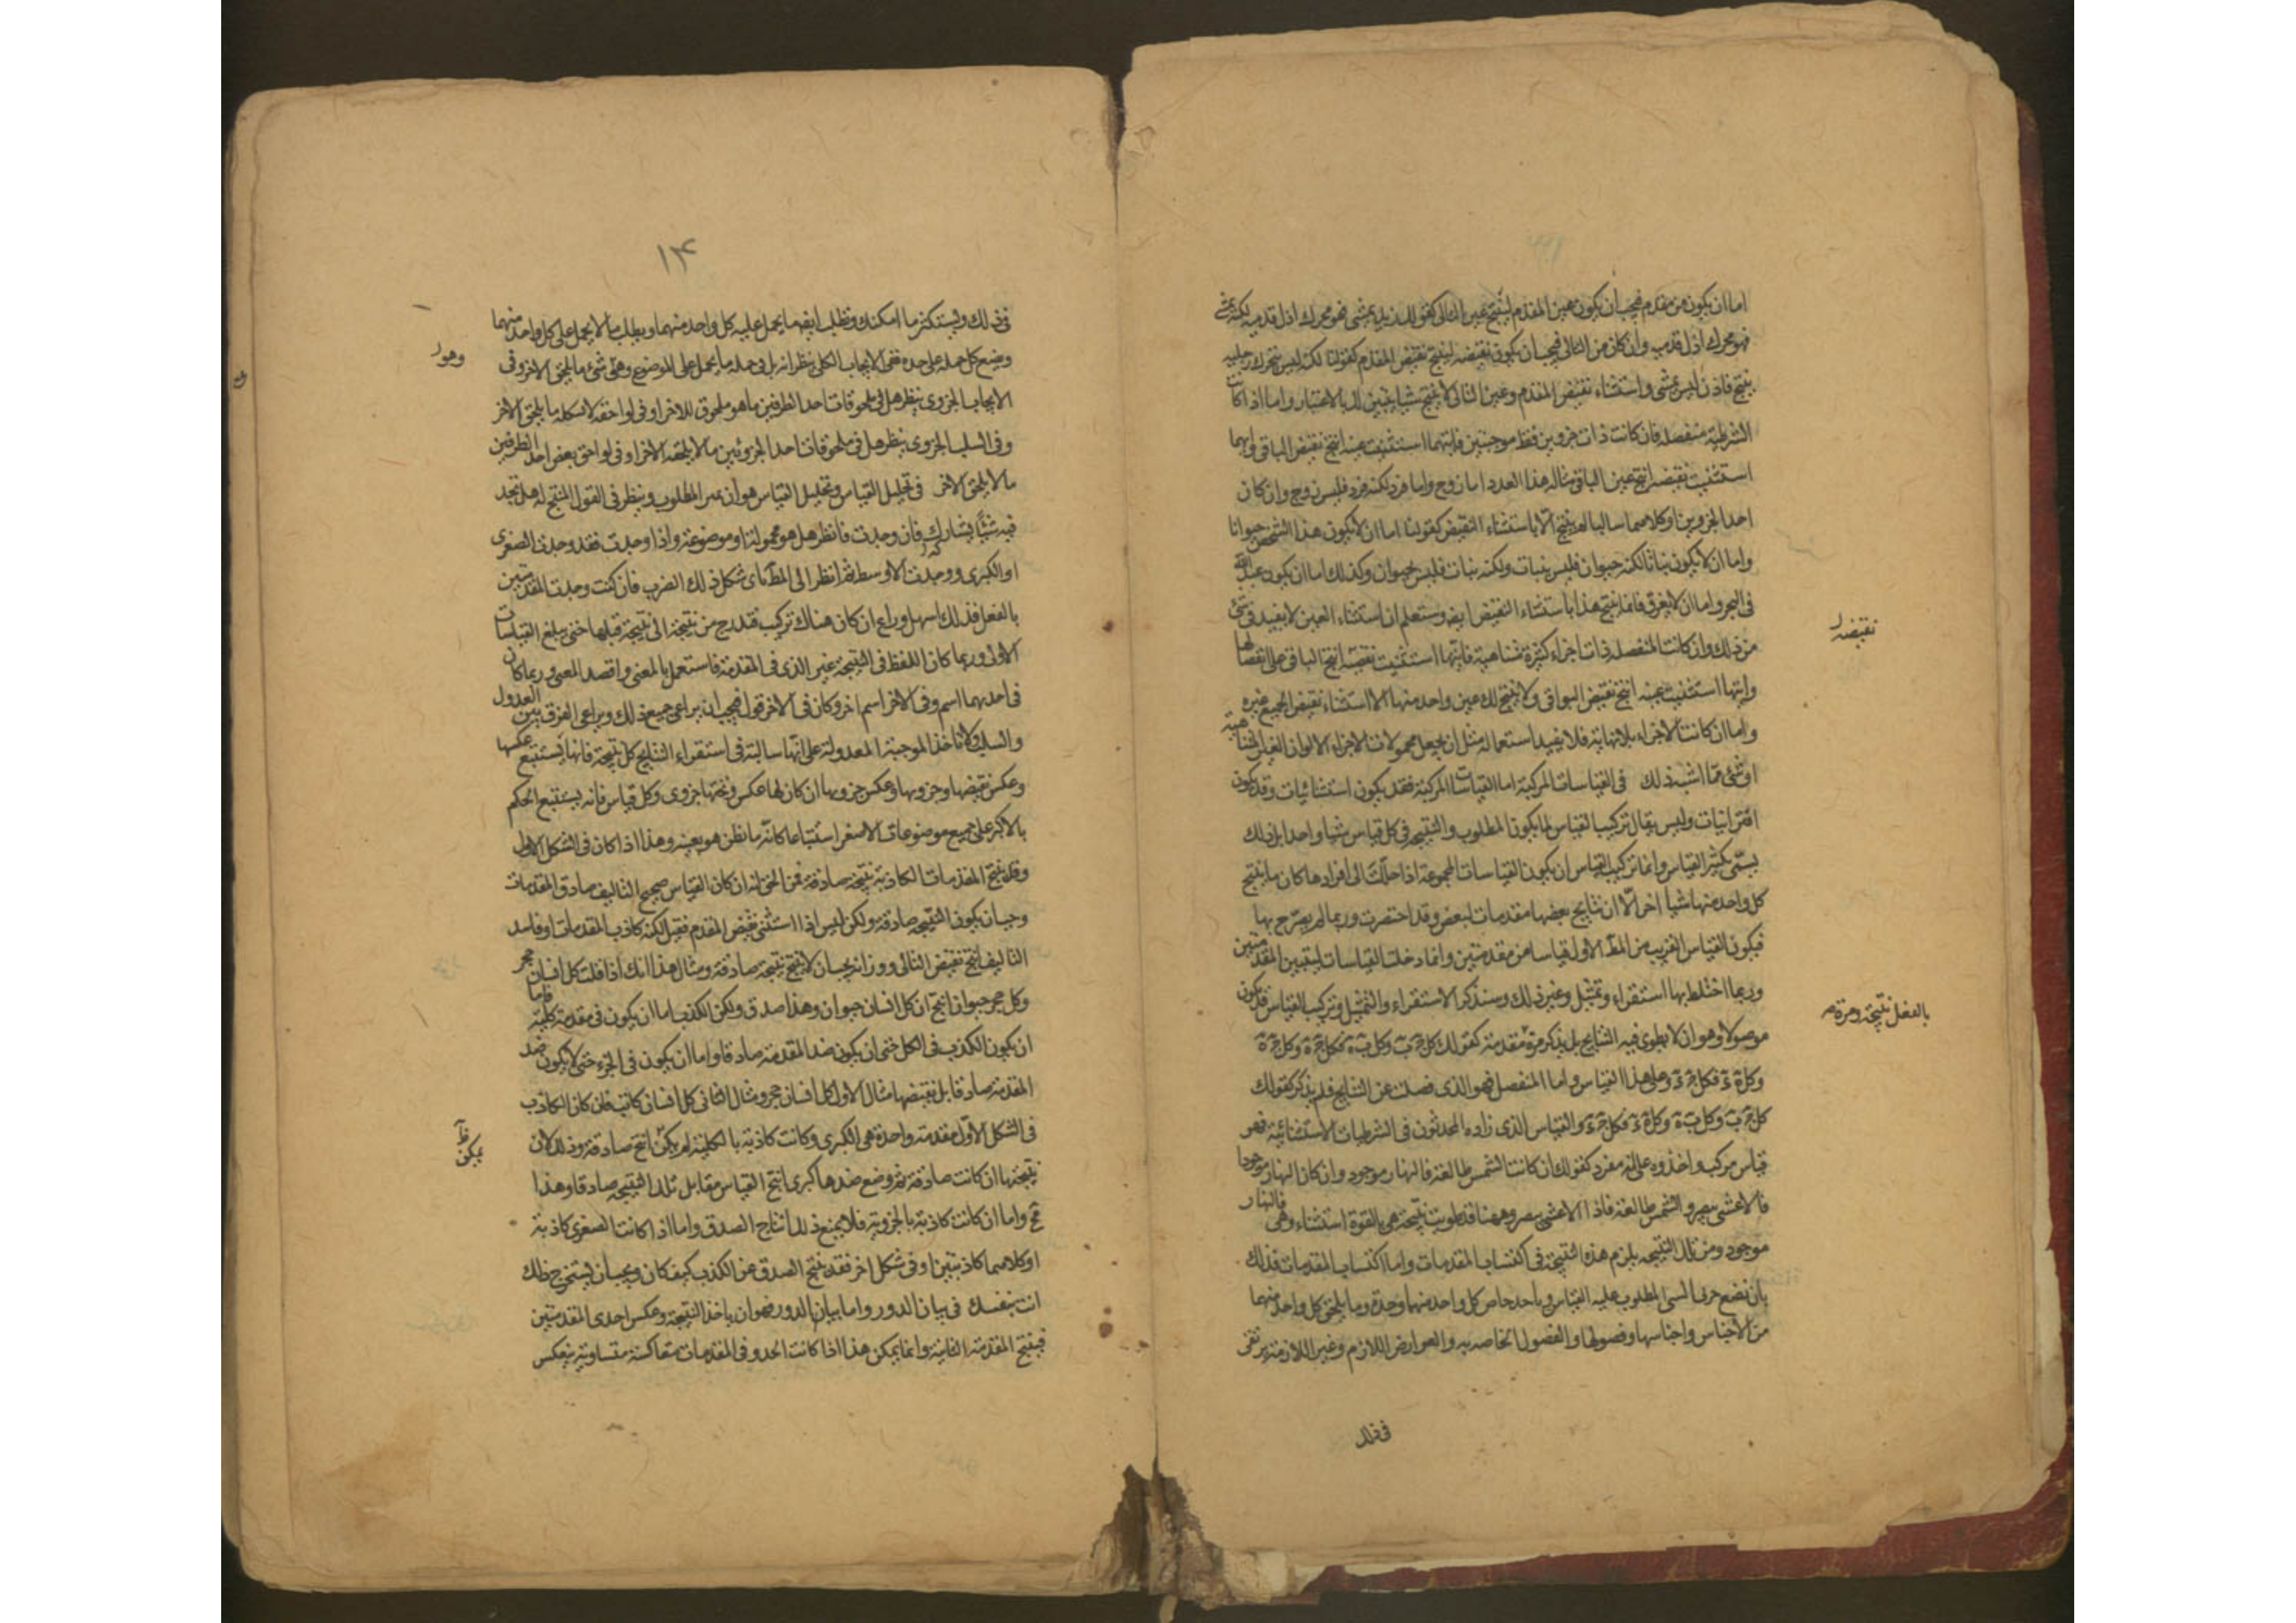 اما ان يكون من مقدم فيجب ان يكون عين المقدم لينتج عين التالى كقولك ان زيد يمشى فهو محرك اذن قدميه لكنه يمشى
فهو محرك اذن قدميه وان كان من التالى فيجب ان يكون نقيضه لينتج نقيض المقدم كقولنا لكنه ليس يتحرك رجليه
ينتج فاذن ليس يمشى واستثناء نقيض المقدم وعين التالى لا ينتج شيا يتبين لك بالاعتبار واما اذا كانت
الشرطية منفصله فان كانت ذات جزوين فقط موجبتين فايتهما استثنيت عينه انتج نقيض الباقى وايهما
استثنيت نقيضه انتج عين الباقى مثاله هذا العدد اما زوج واما فرد لكنه فرد فليس زوج وان كان
احد الجزوين او كلاهما سالبا لم ينتج الا باستثناء النقيض كقولنا اما ان لا يكون هذا الشخص حيوانا
واما ان لا يكون نباتا لكنه حيوان فليس بنبات ولكنه نبات فليس بحيوان وكذلك اما ان يكون عبد الله
فى البحر واما ان لا يغرق فانما ينتج هذا باستثناء النقيض ايضا وستعلم ان استثناء العين لا يفيد فى شئ
من ذلك وان كانت المنفصله ذات اجزاء كثيرة متناهية فايتها استثنيت نقيضه انتج الباقى على انفصالها
وايتها استثنيت عينه انتج نقيض البواقى ولا ينتج لك عين واحد منها الا استثناء نقيض الجميع غيره
واما ان كانت الاجزاء بلا نهاية فلا يفيد استعماله مثل ان يجعل محمولات الاجزاء الالوان الغير المتناهية
او شئ مما اشبه ذلك فى القياسات المركبة اما القياسات المركبة فقد يكون استثنائيات وقد يكون
اقترانيات وليس يقال تركيب القياس لما يكون المطلوب والنتيجه فى كل قياس شيا واحدا بل ذلك
يسمى تكثير القياس وانما تركيب القياس ان يكون القياسات المجموعة اذا حللت الى افرادها كان ما ينتج
كل واحد منها شيا اخر الا ان نتايج بعضها مقدمات لبعض وقد اختصرت وربما لم يصرح بها
فيكون القياس القريب من المط الاول قياسا من مقدمتين وانما دخلت القياسات ليتبين المقدمتين
وربما اختلط بها استقراء وتمثيل وغير ذلك وسنذكر الاستقراء والتمثيل وتركيب القياس قد يكون
موصولا وهو ان لا يطوى فيه النتايج بل يذكر مرة مقدمة كقولك كل ج ب وكل ب ه فكل ج ه وكل ج ه
وكل ه د فكل ج د وعلى هذا القياس واما المنفصل فهو الذى فصلت عن النتايج فلم يذكر كقولك
كل ج ب وكل ب ه وكل ه د فكل ج د والقياس الذى زاده المحدثون فى الشرطيات الاستثنائية فهو
قياس مركب واخذوه على انه مفرد كقولك ان كانت الشمس طالعة فالنهار موجود وان كان النهار موجودا
فالاعشى يبصر والشمس طالعة فاذا الاعشى يبصر وههنا قد طويت نتيجة هى بالقوة استثناء وهى فالنهار
موجود ومن تلك النتيجه يلزم هذه النتيجة فى اكتساب المقدمات واما اكتساب المقدمات فذلك
بان تضع حدى الشى المطلوب عليه القياس وياخذ خاص كل واحد منهما وحده وما يلحق كل واحد منهما
من الاجناس واجناسها وفصولها والفصول الخاصه به والعوارض اللازم وغير اللازمة يرتقى
نقيضه
بالفعل نتيجة ومرة
فى ذلك
١٤
فى ذلك وليستكثر ما امكنك ونطلب ايضا ما يحمل عليه كل واحد منهما ويطلب ما لا يحمل على كل واحد منهما
ويضع كل جمله على حده ففى الايجاب الكلى ينظر انه بل فى جمله ما يحمل على الموضوع وهى شئ ما يلحق الاخر وفى
الايجاب الجزوى ينظر هل فى ملحوقات احد الطرفين ما هو ملحوق للاخر او فى لواحقه لا بكله ما يلحق الاخر
وفى السلب الجزوى ينظر هل فى ملحوقات احد الجزوئين ما لا يلحقه الاخر او فى لواحق بعض احد الطرفين
ما لا يلحق الاخر فى تحليل القياس وتحليل القياس هو ان يميز المطلوب وينظر فى القول المنتج له هل تجد
فيه شيا يشاركه فان وجدت فانظر هل هو محموله او موضوعه واذا وجدت فقد وجدت الصغرى
او الكبرى ووجدت الاوسط ثم انظر الى المط باى شكل ذلك الضرب فان كنت وجدت المقدمتين
بالفعل فذلك اسهل وراع ان كان هناك تركيب فتدرج من نتيجة الى نتيجة قبلها حتى يبلغ القياسات
الاولى وربما كان اللفظ فى النتيجة غير الذى فى المقدمة فاستعمل بالمعنى واقصد المعنى وربما كان
فى احدهما اسم وفى الاخر اسم اخر وكان فى الاخر قول فيجب ان يراعى جميع ذلك ويراعى الفرق بين العدول
والسلب ولا ناخذ الموجبة المعدولة على انها سالبة فى استقراء النتايج كل نتيجة فانها يستتبع عكسها
وعكس نقيضها وجزويها وعكس جزويها ان كان لها عكس وتحتها جزوى وكل قياس فانه يستتبع الحكم
بالاكبر على جميع موضوعات الاصغر استتباعا كانه ما يظن هو بعينه وهذا اذا كان فى الشكل الاول
وقد ينتج المقدمات الكاذبة نتيجة صادقة فمن الحق انه ان كان القياس صحيح التاليف صادق المقدمات
وجب ان يكون النتيجه صادقة ولكن ليس اذا استثنى نقيض المقدم فقيل لكنه كاذب المقدمات او فاسد
التاليف انتج نقيض التالى ووزانه يجب ان لا ينتج نتيجة صادقة ومثال هذا انك اذا قلت كل انسان حجر
وكل حجر حيوان انتج ان كل انسان حيوان وهذا صدق ولكن الكذب اما ان يكون فى مقدمة كلية فاما
ان يكون الكذب فى الكل حتى ان يكون ضد المقدمة صادقا واما ان يكون فى الجزء حتى لا يكون ضد
المقدمة صادقا بل نقيضها مثال الاول كل انسان حجر ومثال الثانى كل انسان كاتب فان كان الكاذب
فى الشكل الاول مقدمة واحدة هى الكبرى وكانت كاذبة بالكلية لم يكن انتج صادقة وذلك لان
نتيجتها ان كانت صادقة ثم وضع ضدها كبرى انتج القياس مقابل تلك النتيجه صادقا وهذا
مح واما ان كانت كاذبة بالجزوية فلا يمنع ذلك انتاج الصدق واما اذا كانت الصغرى كاذبة
او كلاهما كاذبتين او فى شكل اخر فقد ينتج الصدق عن الكذب كيف كان ويجب ان يستخرج ذلك
انت بنفسك فى بيان الدور واما بيان الدور فهو ان ياخذ النتيجة وعكس احدى المقدمتين
فينتج المقدمة الثانية وانما يمكن هذا اذا كانت الحدود فى المقدمات متعاكسة متساوية ينعكس
وهو
يمكن ظ